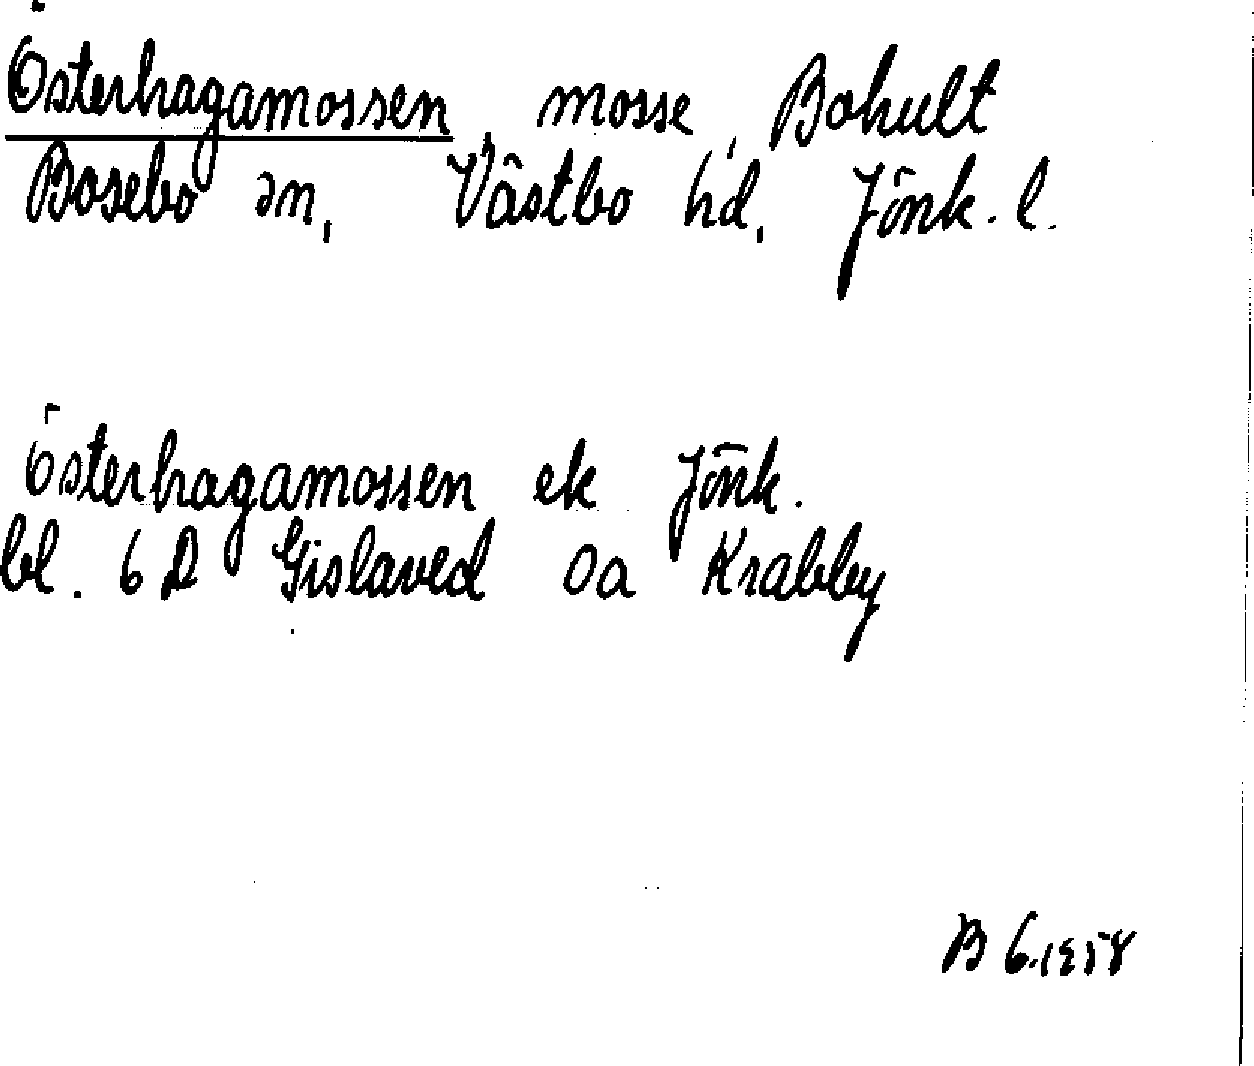 Österhagamossen, mosse, Bohult
Bosebo sn, Västbo hd, Jönk. l.
Österhagamossen ek Jönk.
bl. 6 D Gislaved Oa Krabby
B 6.1958